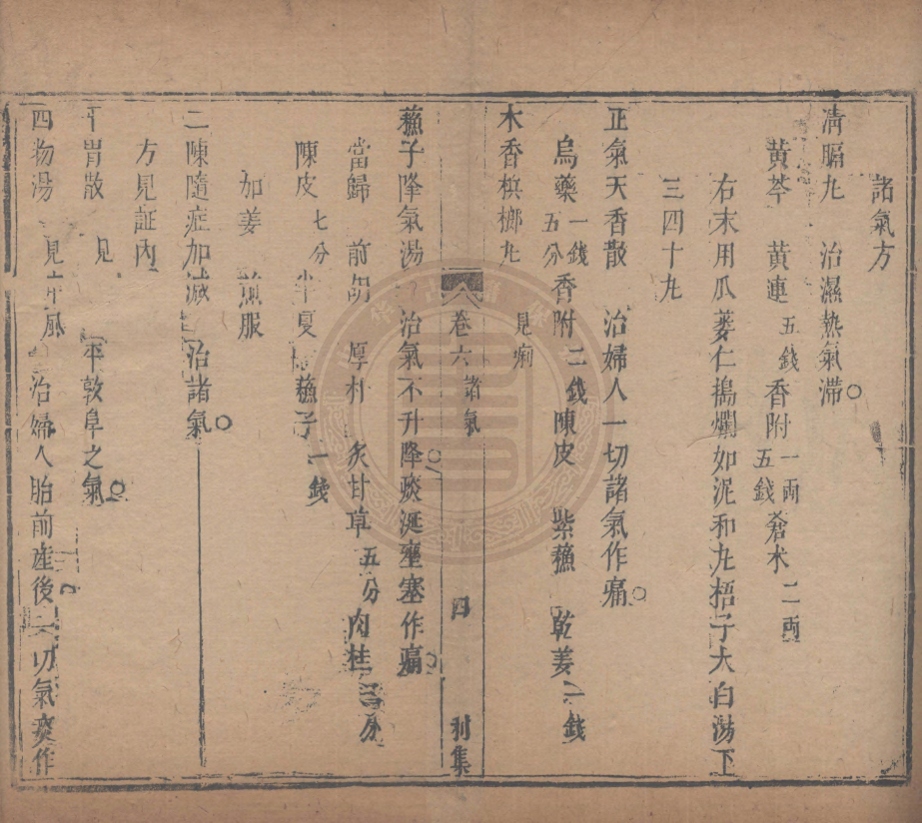 諸氣方
清膈丸 治濕熱氣滯
黃芩 黃連 五錢 香附 一兩五錢 蒼朮 二兩
右末用瓜蔞仁搗爛如泥和丸梧子大白湯下
三四十丸
正氣天香散 治婦人一切諸氣作痛
烏藥 一錢五分 香附 二錢 陳皮 紫蘓 乾姜 一錢
木香梹榔丸 見痢
卷六 諸氣 四 利集
蘓子降氣湯 治氣不升降痰涎壅塞作痛
當歸 前胡 厚朴 炙甘草 五分 肉桂 三分
陳皮 七分 半夏 蘓子 一錢
加姜 煎服
二陳隨症加減 治諸氣
方見証內
平胃散 見 平敦阜之氣
四物湯 見 風 治婦人胎前產後一切氣痰作